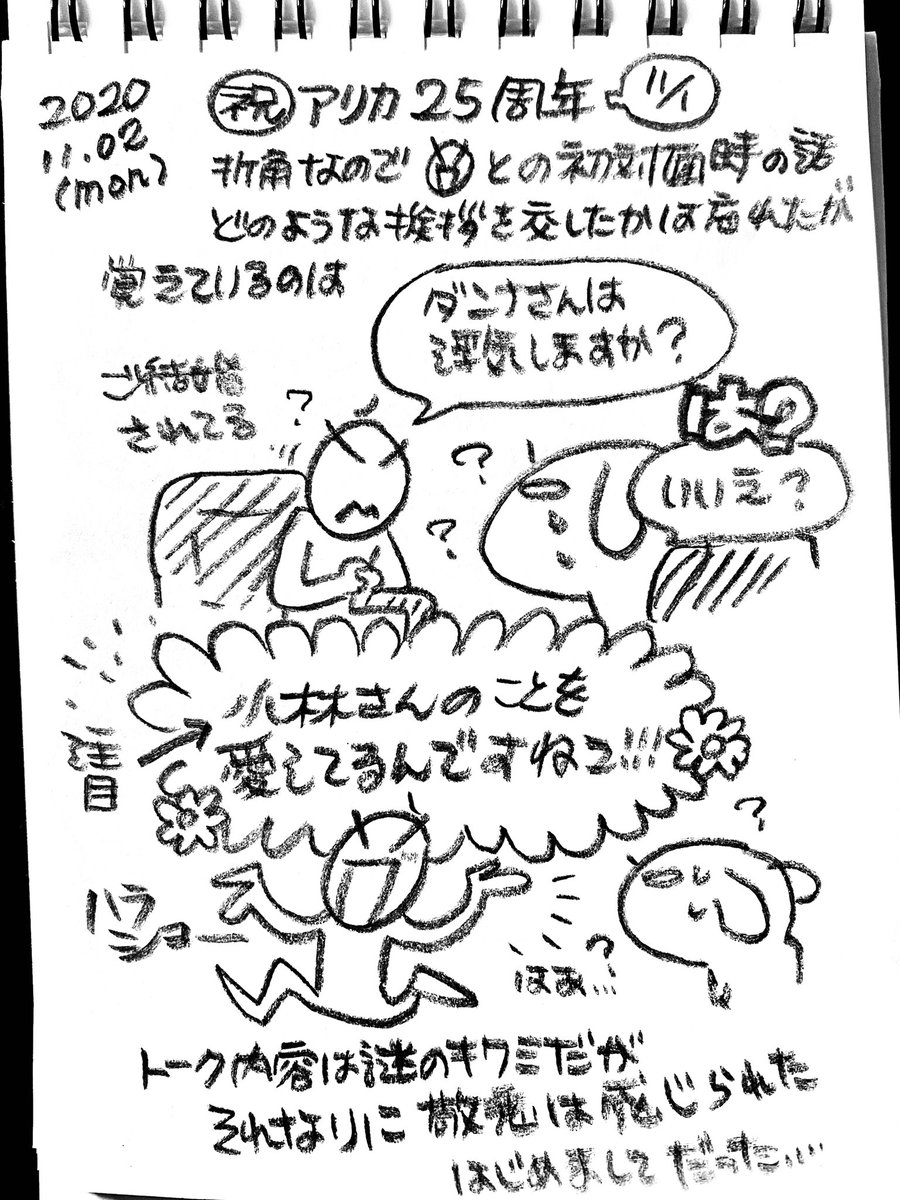 2020
11.02
(mon)
祝 アリカ 25周年 11/1
折角なので との初対面時の話
どのような挨拶を交したかは忘れたが
覚えているのは
ダンナさんは
浮気しますか?
ご結婚
されてる
?
?
?
は?
いいえ?
注目
小林さんのことを
愛してるんですねェ!!!
ハラ
ショー
?
はぁ…?
トーク内容は謎のキワミだが
それなりに敬意は感じられた
はじめましてだった…